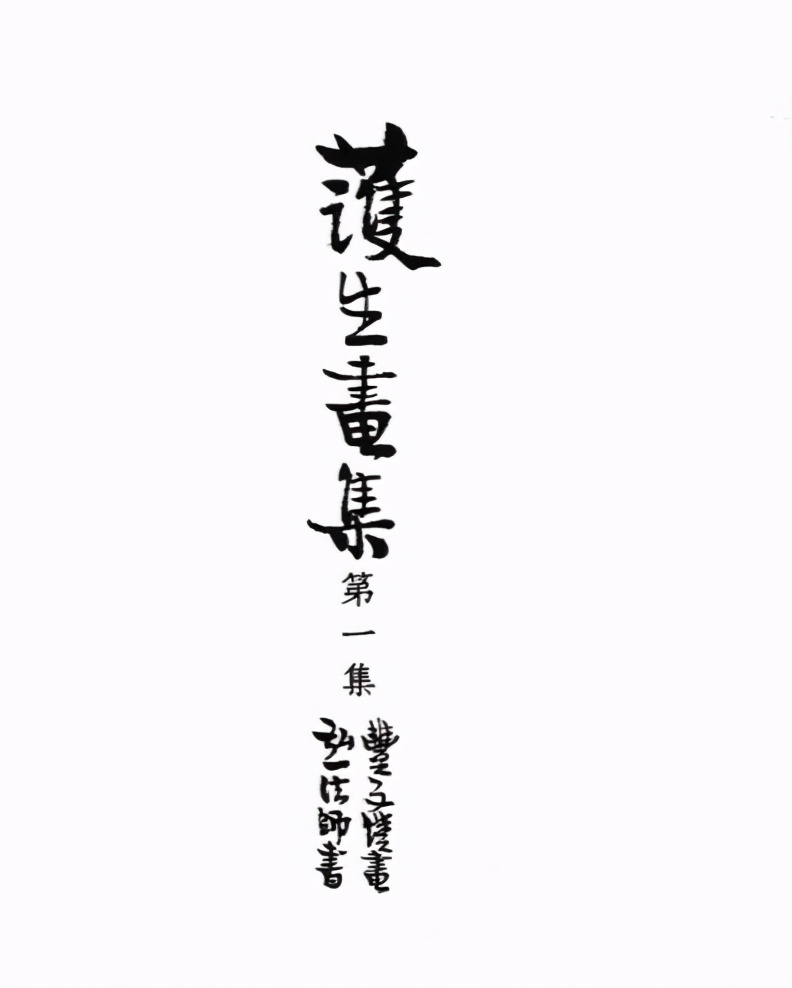 護生畫集
第一集
豐子愷畫
弘一法師書